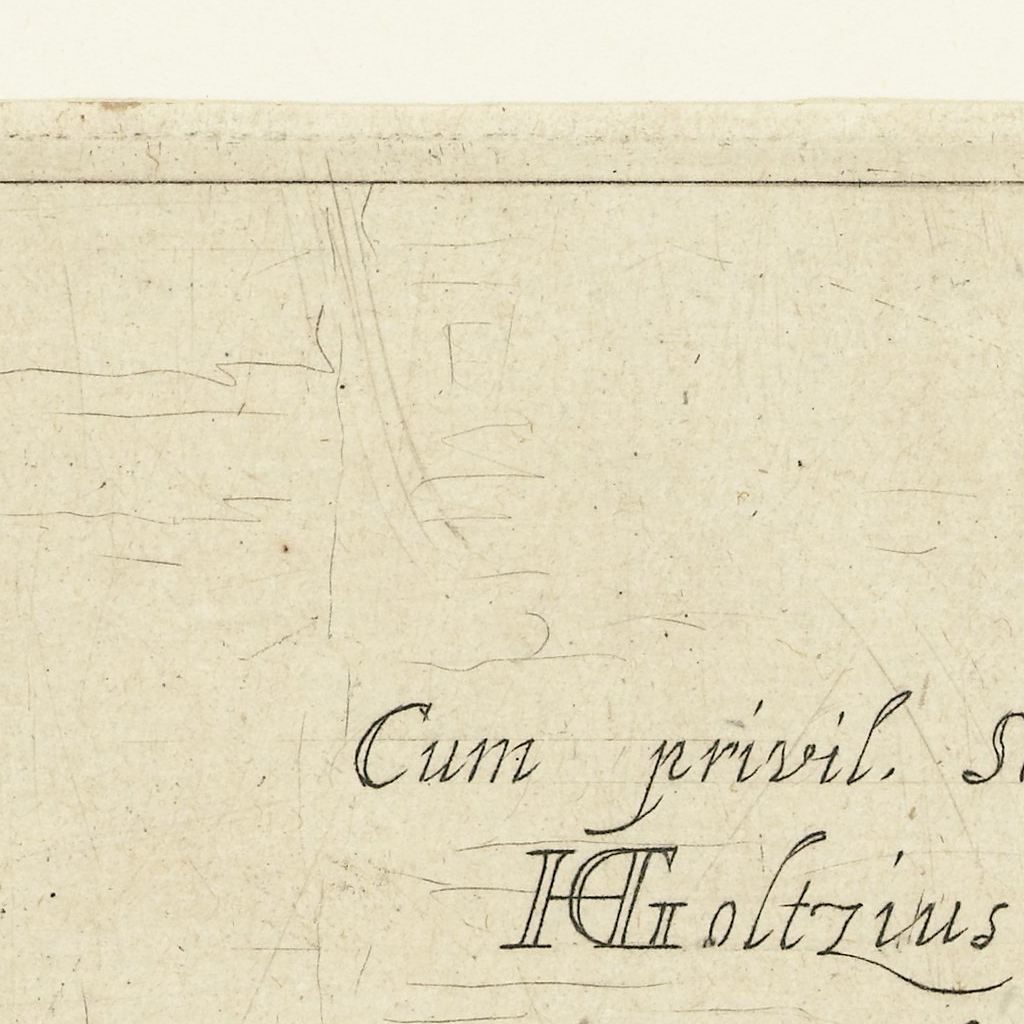 Cum privil.
HGoltzius